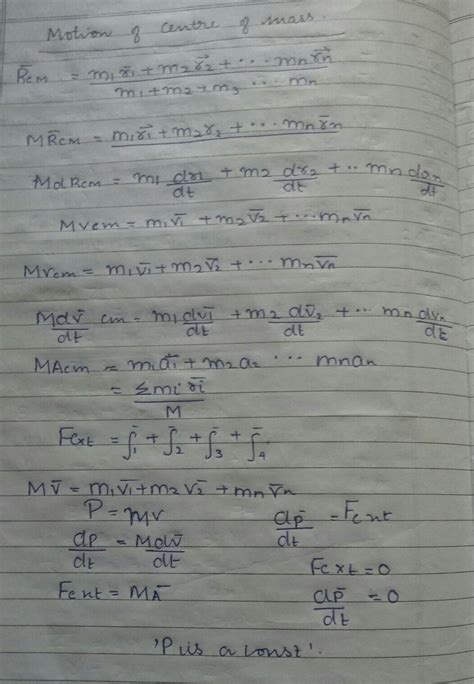 Motion of centre of mass.
R̄cm = m1r̄1 + m2r̄2 + ... mnr̄n / m1 + m2 + m3 ... mn
MR̄cm = m1r̄1 + m2r2 + ... mnr̄n
MdRcm = m1 dr1/dt + m2 dr2/dt + .. mn dan/dt
Mvcm = m1v̄1 + m2v̄2 + ... mnv̄n
Mvcm = m1v̄1 + m2v̄2 + ... mnv̄n
Mdv̄/dt cm = m1 dv̄1/dt + m2 dv̄2/dt + ... mn dvn/dt
MAcm = m1ā1 + m2a2 ... mnan
= Σmi r̄i / M
Fext = f̄1 + f̄2 + f̄3 + f̄4
Mv̄ = m1v̄1 + m2v̄2 + mnv̄n
P = mv
dp̄/dt = Fext
dp/dt = Mdv̄/dt
Fext = 0
Fext = MĀ
dp̄/dt = 0
'P is a const'.